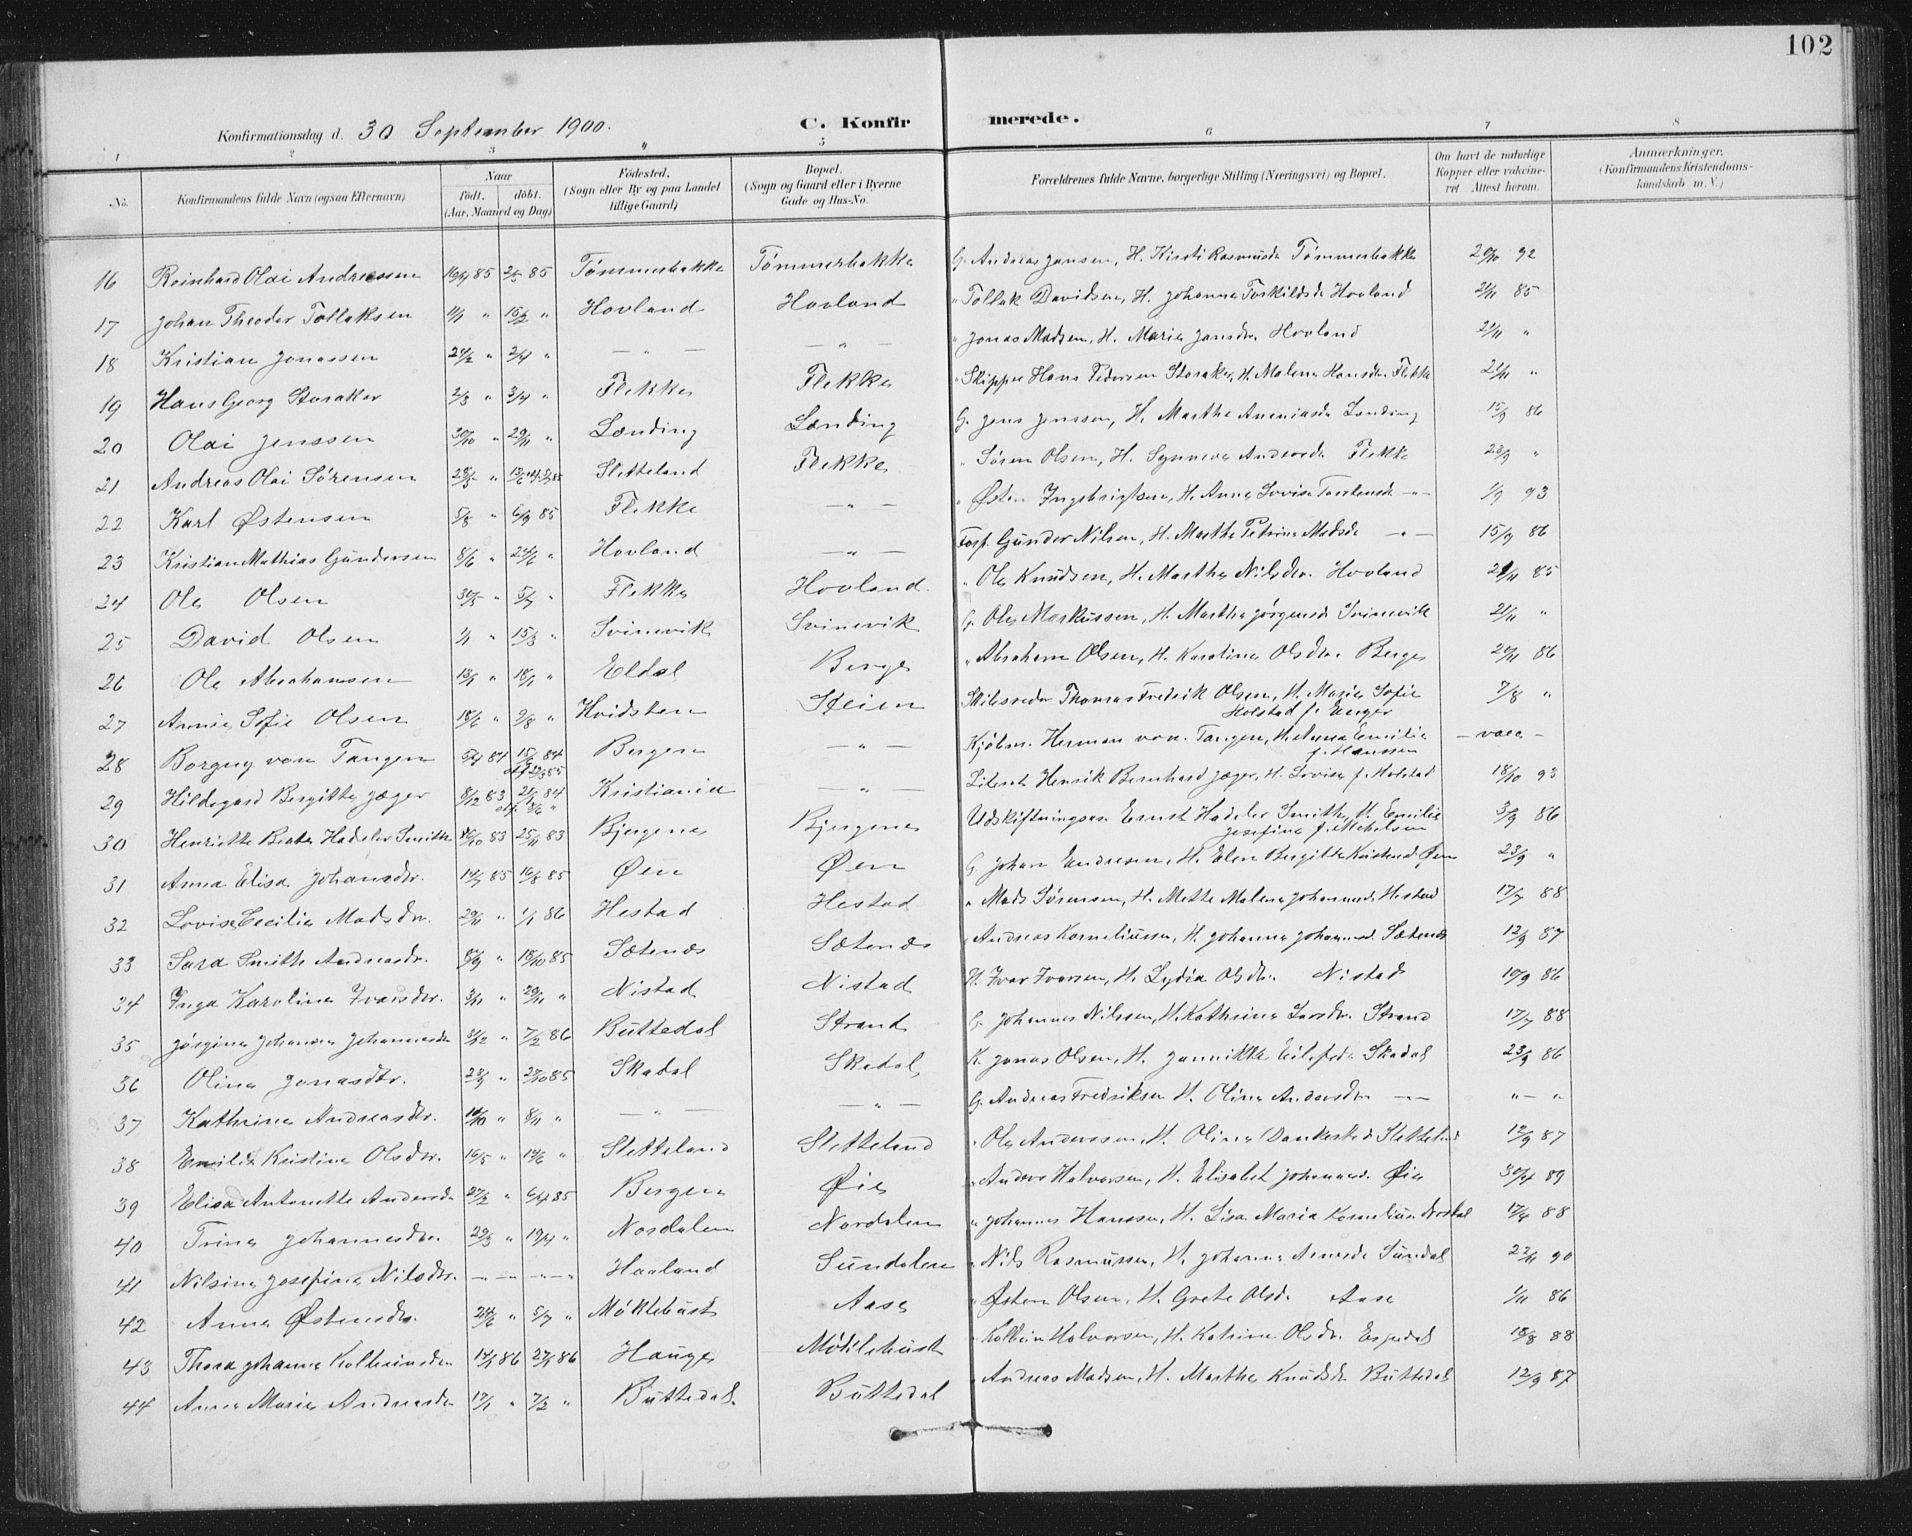 102
Konfirmationsdag d. 30 September 1900. C. Konfirmerede.
1 2 3 " 5 6 7 8
No. Konfirmandens fulde Navn (ogsaa Efternavn) Naar født, døbt. (Aar, Maaned og Dag) Fødested. (Sogn eller By og paa Landet tillige Gaard) Bopæl. (Sogn og Gaard eller i Byerne Gade og Hus-No. Forældrenes fulde Navne, borgerlige Stilling (Næringsvei) og Bopæl. Om havt de naturlige Kopper eller vaccineret Attest herom. Anmærkninger. (Konfirmandens Kristendomskundskab m. V.)
16 Reinhard Olai Andreassen 85 85 Tømmerbakke Tømmerbakke G. Andreas Jansen, H. Kirsti Rasmusdr Tømmerbakke 92
17 Johan Theodor Tollaksen " 15/2 " Hovland Hovland " Tollak Davidsen, H. Johanne Torkildsdr Hovland 21/11 85
18 Kristian Jonassen 24/2 " 2/4 " — " — — " — " Jonas Madsen, H. Marie Jansdr. Hovland 21/11 "
19 Hans Georg Storaker 2/3 " 3/4 " Flekke Flekke " Skipper Hans Pedersen Storaker, H. Malene Hansdr. Flekke 21/11 "
20 Olai Jenssen 30/10 " 29/11 " Lænding Lænding G. Jens Jenssen, H. Marthe Ananiasdr Lænding 15/9 86
21 Andreas Olai Sørensen " Sletteland Flekke " Søren Olsen, H. Synneve Andersdr Flekke 23/9 "
22 Karl Østensen 5/8 " 6/9 85 Flekke — " — " Østen Ingebrigtsen, H. Anne Lovise Torstensdr — " — 1/9 93
23 Kristian Mathias Gundersen 8/6 " 24/6 " Hovland — " — Forp. Gunder Nilsen, H. Marthe Petrine Madsdr — " — 15/9 86
24 Ole Olsen 30/5 " 5/7 " Flekke Hovland. " Ole Knudsen, H. Marthe Nilsdr. Hovland 21/11 85
25 David Olsen 1/1 " 15/3 " Svinevik Svinevik G. Ole Markussen, H. Marthe Jørgensdr Svinevik 21/11 "
26 Ole Abrahamsen 13/1 " 18/1 " Eldal Berge " Abraham Olsen, H. Karoline Olsdr. Berge 24/11 86
27 Annie Sofie Olsen 18/6 " 2/8 " Hvidsten Steien Thomas Fredrik Olsen, H. Marie Sofie Holstad f. Enger 7/8 "
28 Borgny von Tangen 84 15/6 84 85 Bergen — " — Kjøbm. Herman von Tangen, H. Anna Emilie f. Hanssen — vacc —
29 Hildegard Bergitte Jæger 8/12 83 84 Kristiania — " — Literat Henrik Bernhard Jæger, H. Lovise f. Holstad 18/10 93
30 Henriette Beate Hadeler Smith 16/10 83 25/11 83 Bjergene Bjergene Udskiftningsf. Ernst Hadeler Smith, H. Emilie Josefine f. Michelsen 3/9 86
31 Anna Elisa Johansdr. 14/7 85 16/8 85 Øen Øen G. Johan Endresen, H. Elen Bergitte Kristensdr Øen 23/9 "
32 Lovise Cecilie Madsdr. 29/11 " 1/1 86 Hestad Hestad " Mads Sørensen, H. Mette Malene Johannesdr Hestad 17/7 88
33 Sara Smith Andreasdr. " 18/10 85 Sætenæs Sætenæs " Andreas Korneliussen, H. Johanne Johannesdr. Sætenæs 12/9 87
34 Inga Karoline Ivarsdr. 3/11 " 29/11 " Nistad Nistad H. Ivar Ivarsen, H. Lydia Olsdr. Nistad 10/9 86
35 Jørgine Johanne Johannesdr 31/12 " 7/2 86 Buttedal Strand G. Johannes Nilssen, H. Kathrine Larsdr. Strand 17/7 88
36 Oline Jonasdtr. 23/9 " 27/10 85 Skadal Skadal K. Jonas Olsen, H. Jannikke Eilefsdr. Skadal 23/9 86
37 Kathrine Andreasdr. 10/10 " 8/11 " — " — — " — G. Andreas Fredriksen H. Oline Andersdr — " — " — "
38 Emilie Kristine Olsdr. 16/5 " 14/6 " Sletteland Sletteland " Ole Anderssen, H. Oline Dankertsdr. Sletteland 12/9 87
39 Elisa Antonette Andersdr 27/2 " 6/4 85 Bergen Øie " Anders Halvorsen, H. Elisabet Johannesdr. Øie 30/4 89
40 Trine Johannesdr. 29/3 " 19/4 " Nordalen Nordalen " Johannes Hanssen, H. Lisa Maria Korneliusdr Nordal 17/4 88
41 Nilsine Josefine Nilsdr. — " — — " — Haaland Sundalen " Nils Rasmussen, H. Johanne Arnesdr Sundal 27/11 90
42 Anne Østensdr. 24/6 " 5/7 " Møklebust Aase " Østen Olsen, H. Grete Olsdr. Aase 1/11 86
43 Thora Johanne Kolbeinsdr. 86 86 Hauge Møklebust " Kolbein Halvorsen, H. Katrine Olsdr. Espedal 18/8 88
44 Anne Marie Andreasdr. 17/1 " 7/2 " Buttedal. Buttedal " Andreas Madsen, H. Marthe Knudsdr Buttedal 12/9 87